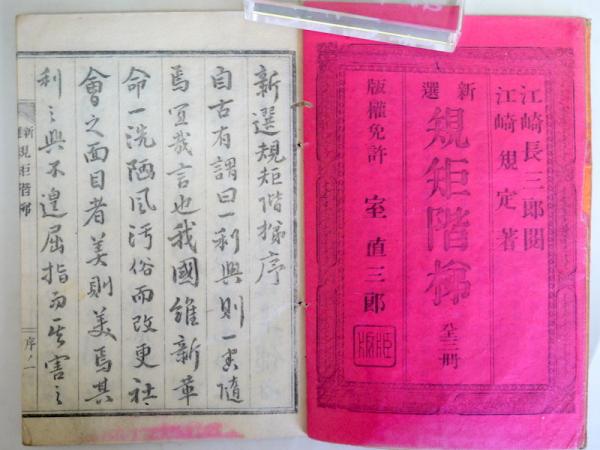 江崎長三郎閲
江崎規定著
新選
規矩階梯
全三冊
版權免許
室直三郎
新選規矩階梯序
自古有謂曰一利興則一害隨
焉宜哉言也我國維新革
命一洗陋風汚俗而改更社
會之面目者美則美焉其
利之興不遑屈指而其害之
新選規矩階梯
序ノ一